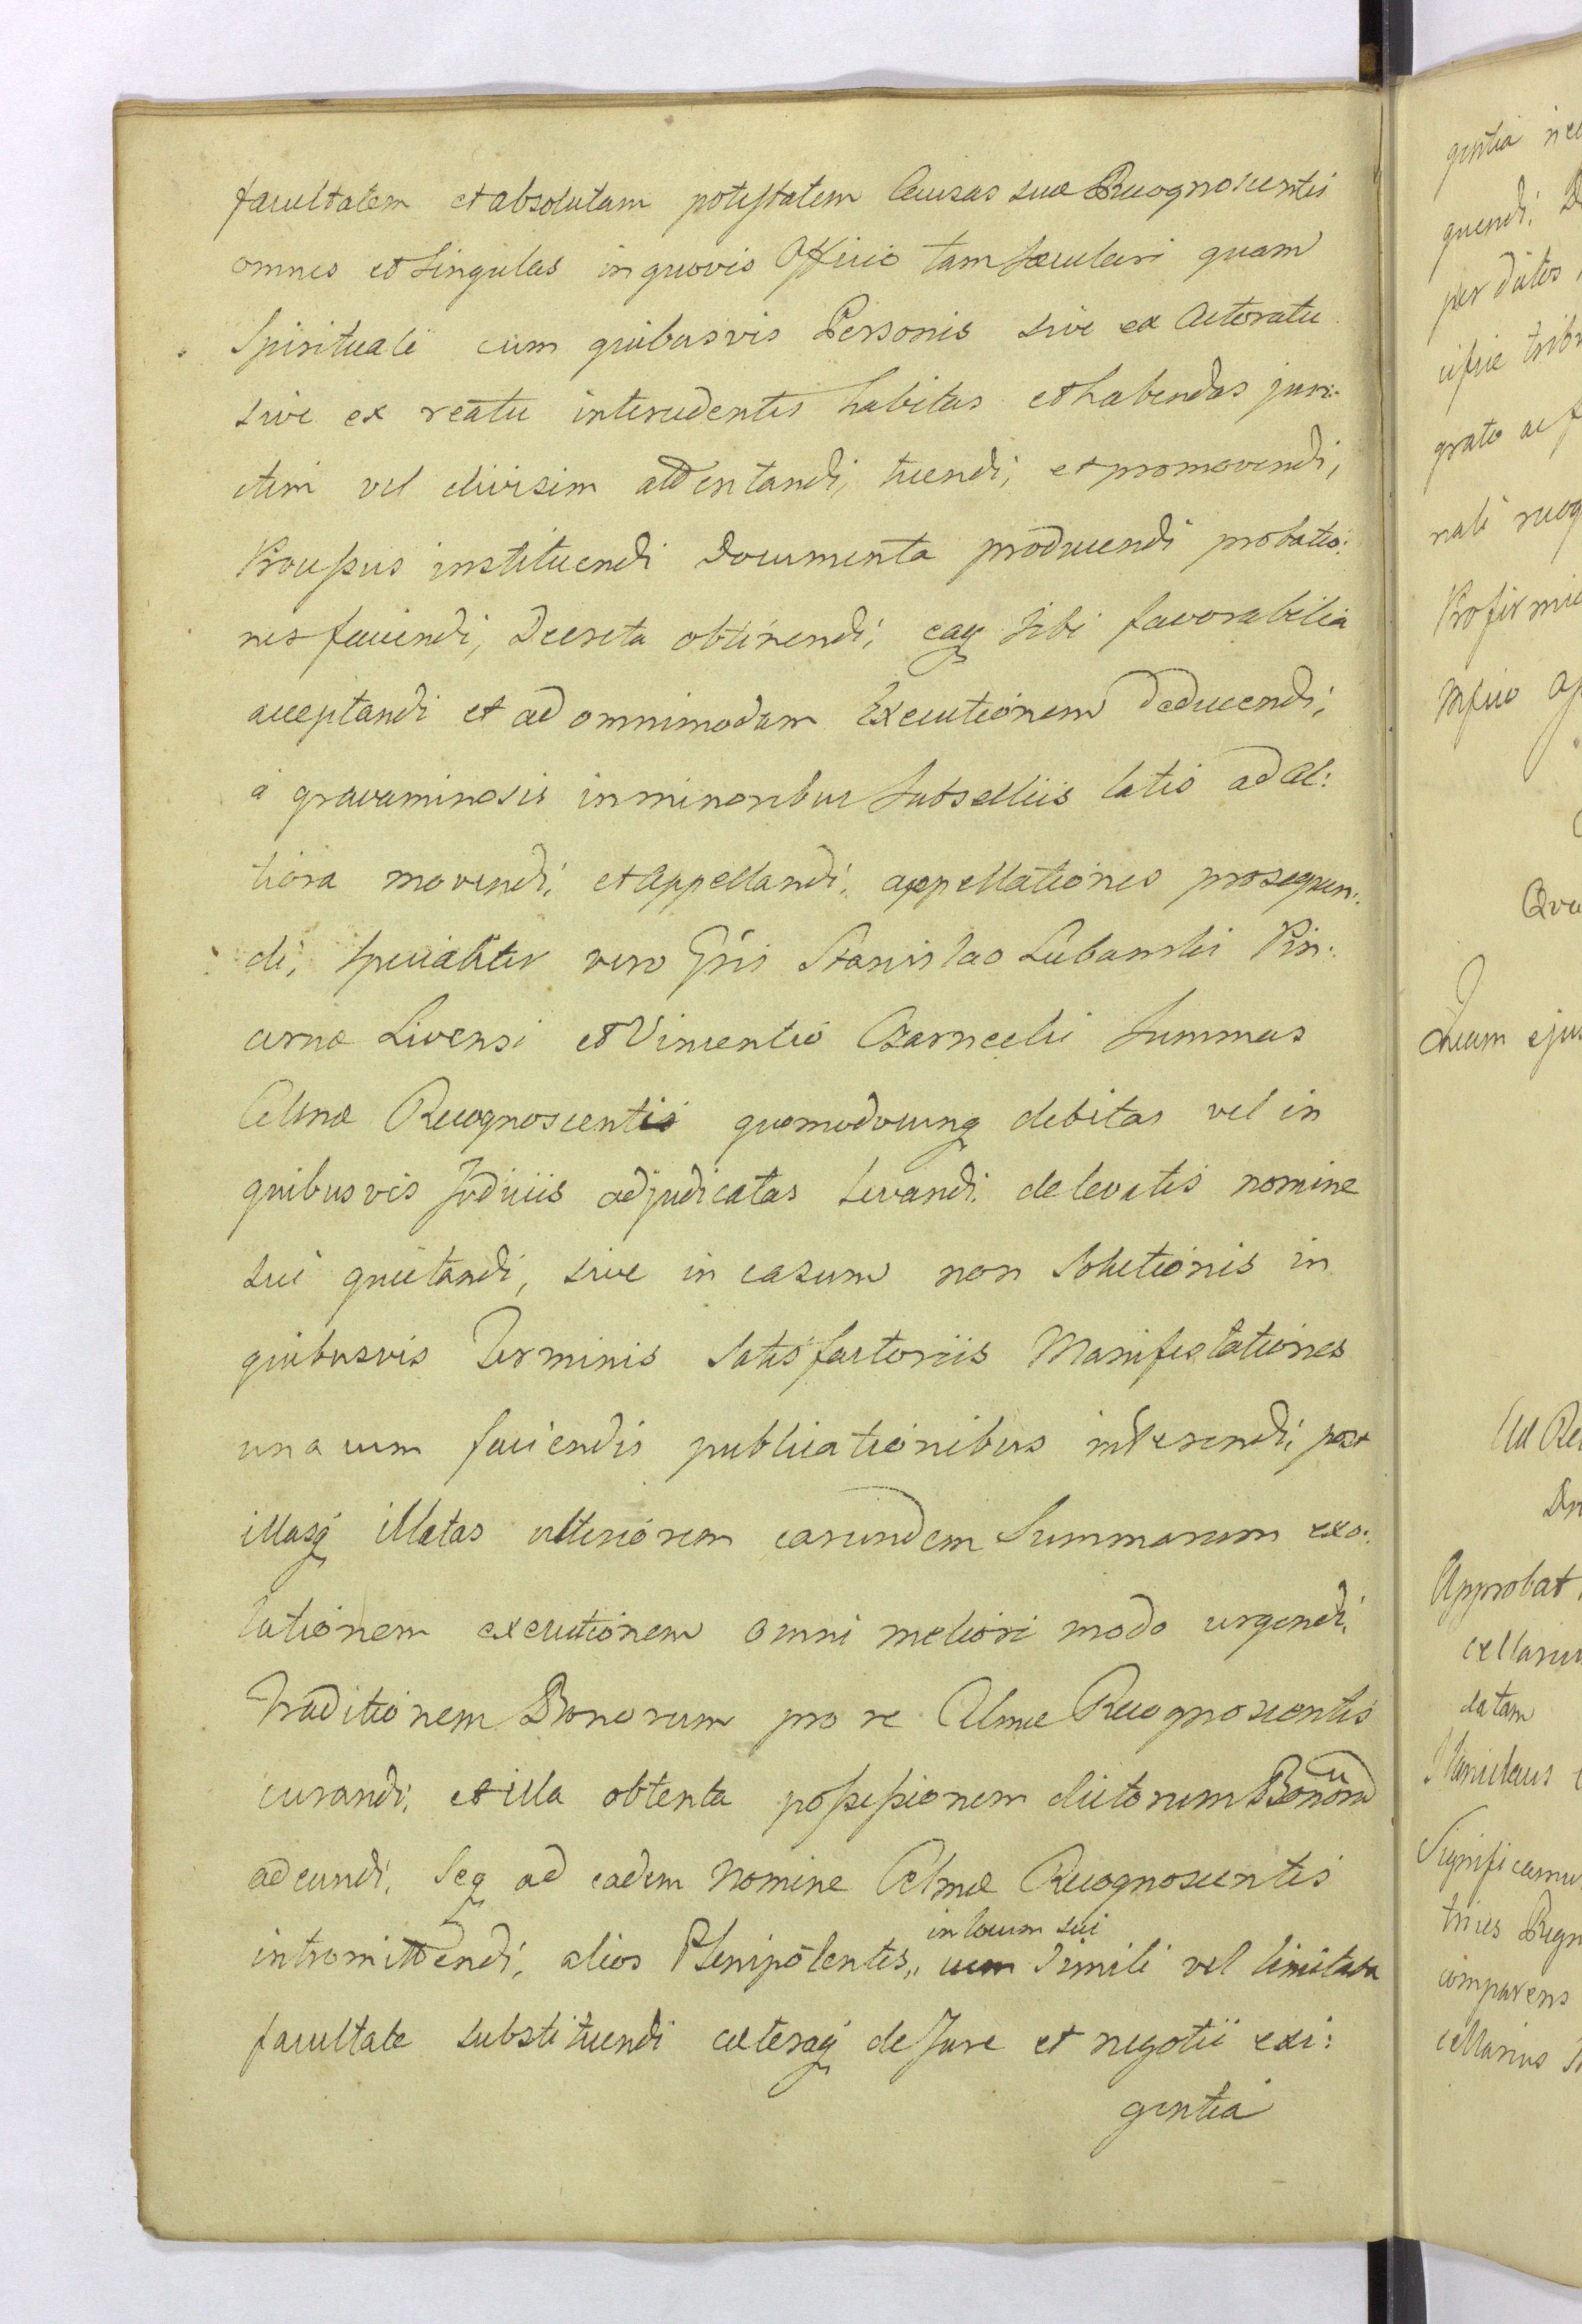 facultatem et absolutam potestatem Causas suæ Recognoscentis
omnes et singulas in quovis Officio tam sæculari quam
Spirituali cum quibusvis Personis sive ex Actoratu
sive ex reatu intercedentes habitas et habendas junc:
ctim vel divisim attentandi, tuendi, et promovendi,
Processus instituendi Documenta producendi probatio:
nes faciendi, Decreta obtinendi, eaq sibi favorabilia
acceptandi et ad omnimodam Executionem deducendi,
a gravaminosis in minoribus Subselliis latis ad al:
tiora movendi, et appellandi, appellationes prosequen:
di, specialiter vero Gsis Stanislao Lubanski Pin:
cernæ Livensi et Vincentio Czarnecki Summas
Celsnæ Recognoscentis quomodocunq debitas vel in
quibusvis Judiciis adjudicatas levandi, de levatis nomine
sui quietandi, sive in casum non solutionis in
quibusvis Terminis satisfactoriis Manifestationes
una cum faciendis publicationibus inserendi, post
illasq illatas ulteriorem earundem Summarum exo:
lutionem executionem omni meliori modo urgendi,
Traditionem Bonorum pro re Celsnæ Recognoscentis
curandi, et illa obtenta possessionem dictorum Bonorum
adeundi, Seq ad eadem Nomine Celsnæ Recognoscentis
intromittendi, alios Plenipotentes,, in locum sui cum simili vel limitata
facultate substituendi cæteraq de Jure et negotii exi:
gentia
gentia
quendi,
per
grato
Approbat
datam
comparens